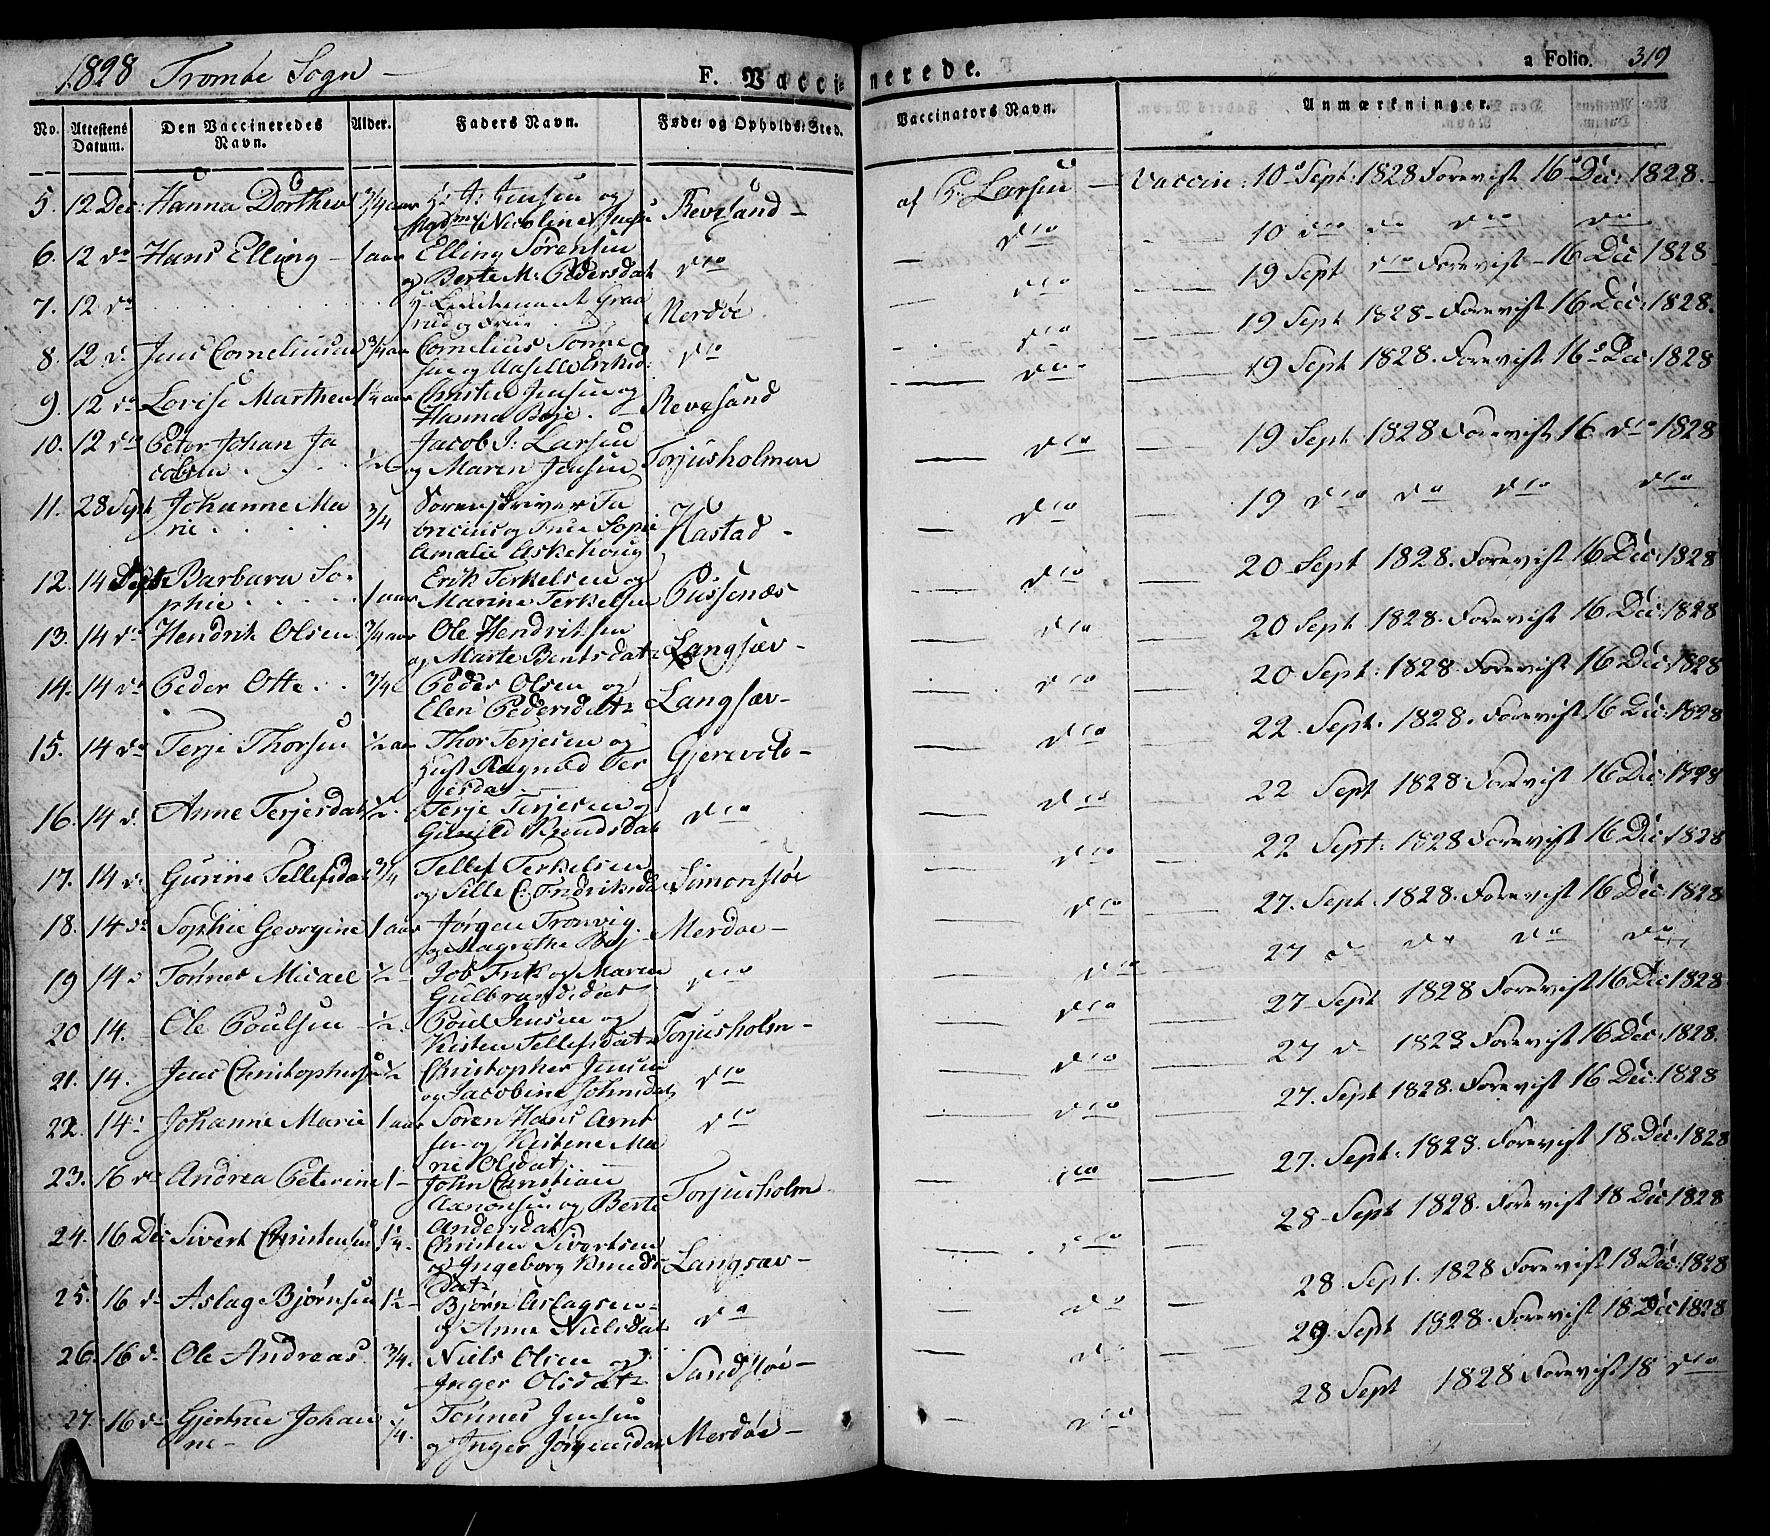 1828 Tromøe Sogn
F. Vaccinerede.
a Folio. 319
No. Attestens Datum. Den Vaccineredes Navn. Alder. Faders Navn. Føde- og Opholds-Sted. Vaccinators Navn. Anmærkninger.
5. 12 Dec: Hanna Dorthea 1 3/4 aar Jensen og Revesand af Larsen Vaccin: 10 Sept: 1828 Forevist 16 Dec: 1828.
Nicoline Jensen
6. 12 do Hans Elling 1 aar Elling Sørensen og Berte M: Pedersdat dto dto 10 dto do dto do
7. 12 do Lieutenant Graarud og Frue Merdøe dto 19 Sept dto Forevist 16 Dec 1828
8. 12 d. Jens Corneliusen 3/4 aar Cornelius Tønnesen og dto dto 19 Sept 1828 Forevist 16 Dec: 1828.
9. 12 do Lovise Marthea 1 1/4 aar Christen Jensen og Hanna Boje Revesand dto 19 Sept 1828. Forevist 16 Dec: 1828
10. 12 dto Peter Johan Jacobsen 1/2 Jacob J: Larsen og Maren Jensen Torjusholmen dto 19 Sept 1828 Forevist 16 dto 1828
11. 28 Sept Johanne Marie 3/4 Sorenskriver og Frue Sopie Amalie Hastad dto 19 dto do dto dto
12. 14 Barbara Sophie 1 aar Erik Terkelsen og Marine Terkelsen Pussenæs dto 20 Sept 1828. Forevist 16 Dec: 1828
13. 14 do Hendrik Olsen 3/4 aar Ole Hendriksen og Marte Bentsdat Langsæv dto 20 Sept 1828. Forevist 16 Dec: 1828
14. 14 do Peder Otte 3/4 Peder Olsen og Elen Pedersdat Langsæv dto 20 Sept: 1828. Forevist 16 Dec: 1828
15. 14 do Terje Thorsen 1/2 aar Thor Terjesen og Hust Ragnild Terjesdat Gjerevold dto 22 Sept: 1828. Forevist 16 Dec: 1828
16. 14 d. Anne Terjesdat 1/2 Terje Terjesen og Gunild Knudsdat dto dto 22 Sept 1828 Forevist 16 Dec: 1828
17. 14 d. Gurine Tellefsdat 3/4 Tellef Terkelsen og Sille C: Fredriksdat Simonstøe dto 22 Sept: 1828 Forevist 16 Dec: 1828
18. 14 do Sophie Georgine 1 aar Jørgen Tronvig og Magrethe Boj Merdøe dto 27. Sept: 1828. Forevist 16 Dec: 1828
19 14 Tønnes Micael 1/2 Job og Maren Gulbrandsdat dto dto 27 do dto do
20 14. Ole Poulsen 1/2 Poul Jensen og Kirsten Tellefsdat Torjusholm dto 27 Sept 1828 Forevist 16 Dec: 1828
21. 14. Jens Christophersen 1/2 Christopher Jensen og Jacobine Johnsdat dto dto 27 d. 1828 Forevist 16 Dec: 1828.
22. 14 Johanne Marie 1 aar Søren Hans Arntsen og Kirstene Marie Olsdat dto dto 27. Sept 1828. Forevist 16 Dec: 1828
23. 16 do Andrea Peterine 1 John Christian Aanonsen og Berte Andersdat Torjusholm dto 27. Sept: 1828. Forevist 18 Dec: 1828
24. 16 Dec Sivert Christensen 1 1/4 Christen Sivertsen og Ingeborg Knudsdat Langsæv dto 28 Sept 1828. Forevist 18 Dec 1828
25. 16 do Aslag Bjørnsen 1 1/2 Bjørn Aslagsen og Anne Nielsdat do do 28 Sept. 1828 Forevist 18 Dec: 1828
26. 16 d. Ole Andreas 3/4 Niels Olsen og Inger Olsdat Sandstøe do 29. Sept 1828. Forevist 18 Dec 1828
27. 16 do Gjertrue Johanne 1/4 Tønnes Jensen og Inger Jørgensdat Merdøe dto 28 Sept 1828 Forevist 18 dto